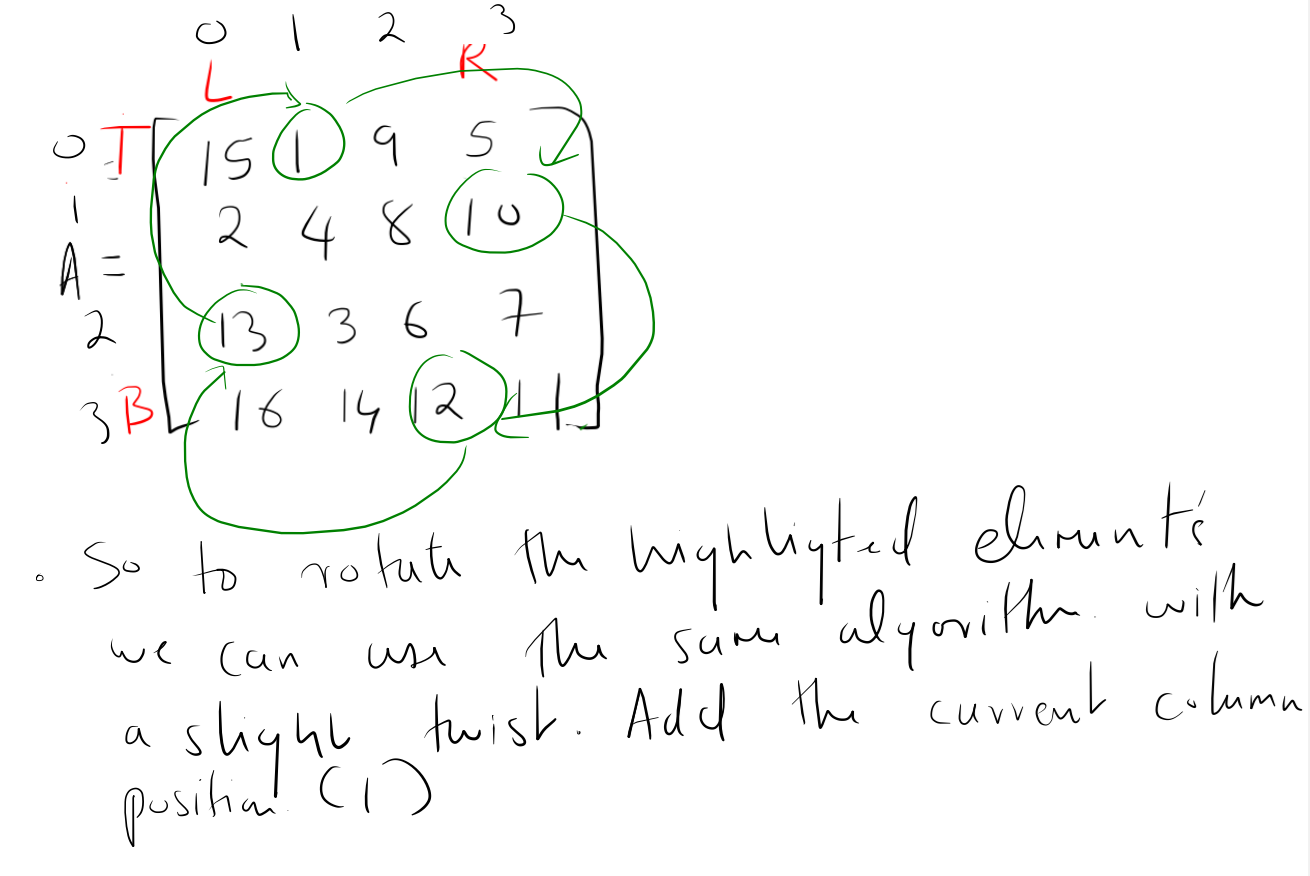 0 1 2 3
L R
0 T 15 1 9 5
1 2 4 8 10
A =
2 13 3 6 7
3 B 16 14 12 11
. So to rotate the highligted elements
we can use the same algorithm with
a slight twist. Add the current column
position. (1)